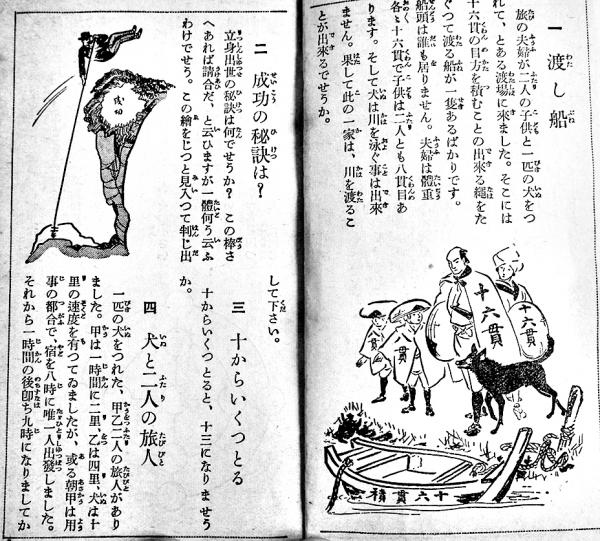 一 渡し船
旅の夫婦が二人の子供と一匹の犬をつ
れて、とある渡場に來ました。そこには
十六貫の目方を積むことの出來る繩をた
ぐつて渡る船が一隻あるばかりです。
船頭は誰も居りません。夫婦は體重
各〻十六貫で子供は二人とも八貫目あ
ります。そして犬は川を泳ぐ事は出來
ません。果して此の一家は、川を渡るこ
とが出來るでせうか。
十六貫
十六貫
貫
貫
積貫六十
二 成功の秘訣は?
立身出世の秘訣は何でせうか? この棒さ
へあれば請合だ、と云ひますが一體何う云ふ
わけでせう。この繪をじつと見入つて判じ出
して下さい。
成功
三 十からいくつとる
十からいくつとると、十三になりませう
か。
四 犬と二人の旅人
一匹の犬をつれた、甲乙二人の旅人があり
ました。甲は一時間に二里、乙は四里、犬は十
里の速度を有つてゐましたが、或る朝甲は用
事の都合で、宿を八時に唯一人出發しました。
それから一時間の後卽ち九時になりましてか